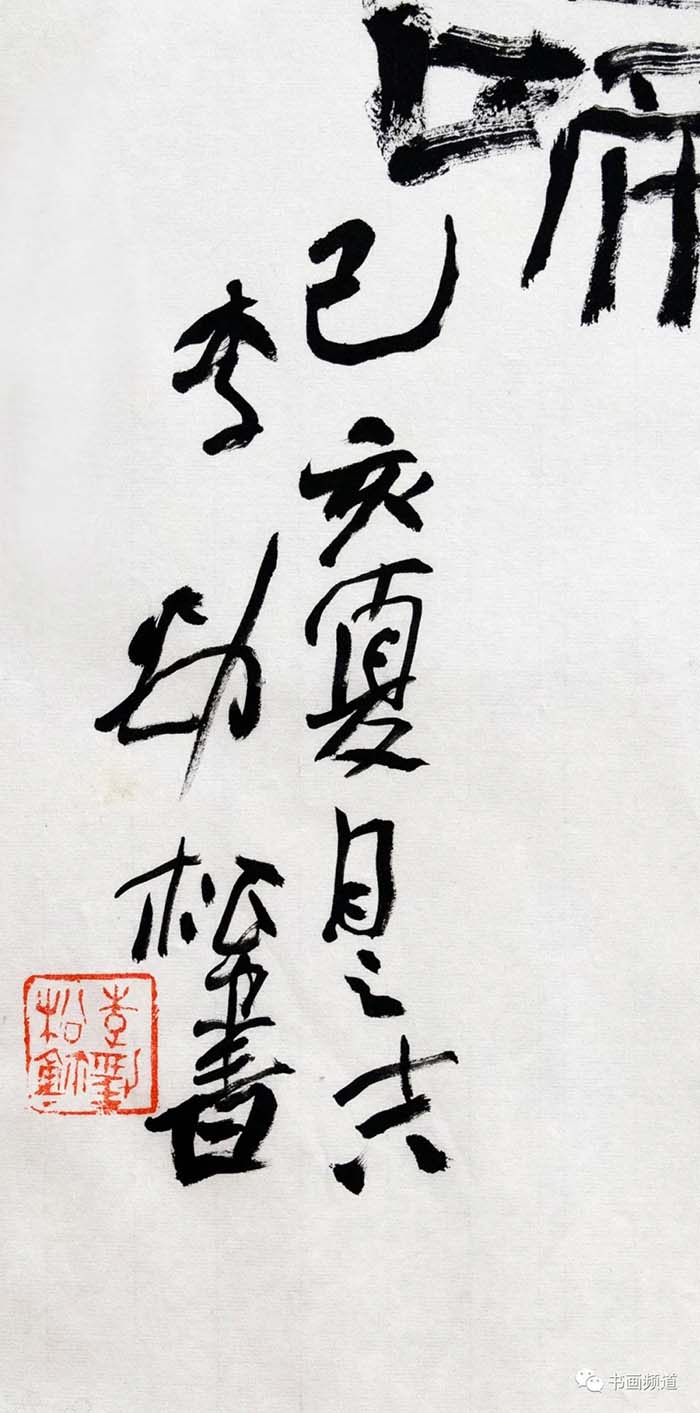 己亥夏月之吉
李勁松書
李勁松鉥
书画频道